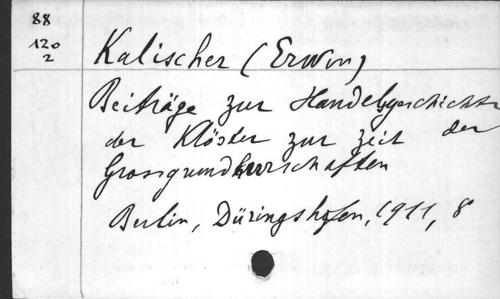 88
120
2
Kalischer (Erwin)
Beiträge zur Handelsgeschichte
der Klöster zur zeit der
Grossgrundherrschaften
Berlin, Düringshofen, 1911, 8°